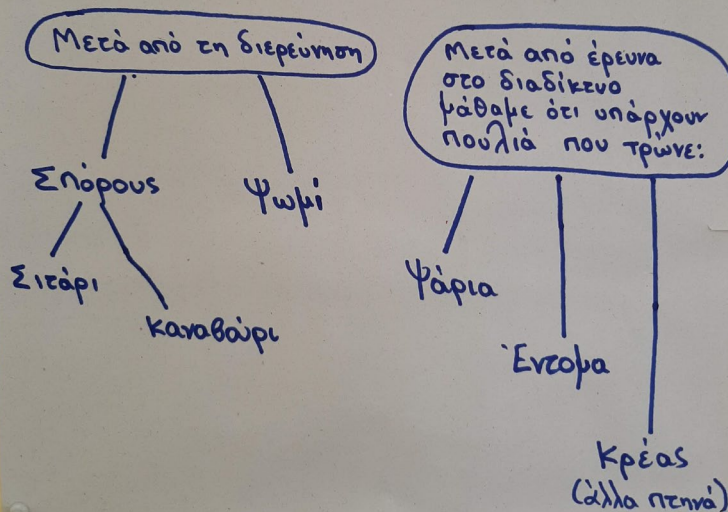 Μετά από τη διερεύνηση
Σπόρους
Ψωμί
Σιτάρι
καναβούρι
Μετά από έρευνα
στο διαδίκτυο
μάθαμε ότι υπάρχουν
πουλιά που τρώνε:
Ψάρια
Έντομα
Κρέας
(άλλα πτηνά)